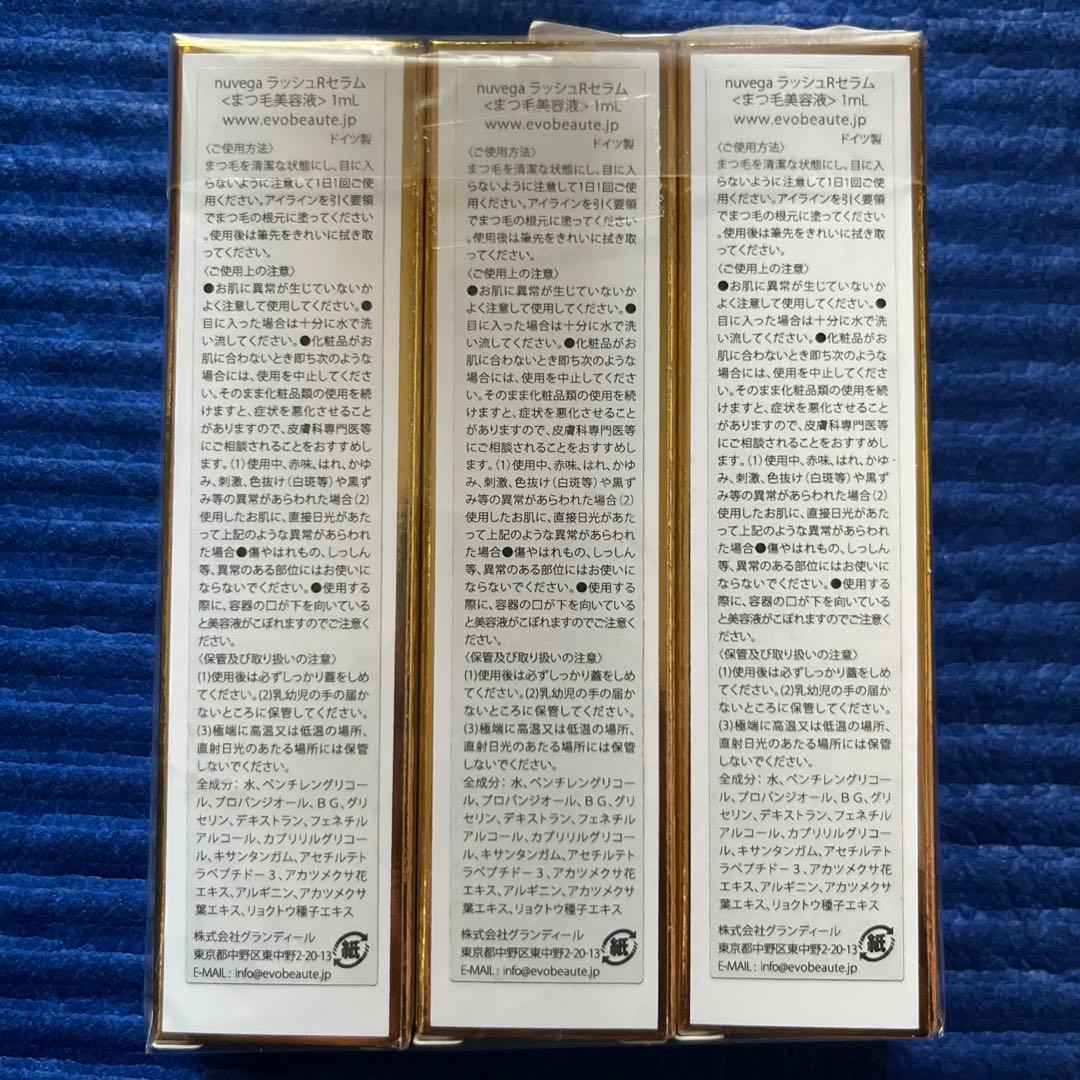 nuvega ラッシュRセラム
<まつ毛美容液> 1mL
www.evobeaute.jp
ドイツ製
〈ご使用方法〉
まつ毛を清潔な状態にし、目に入
らないように注意して1日1回ご使
用ください。アイラインを引く要領
でまつ毛の根元に塗ってください
。使用後は筆先をきれいに拭き取
ってください。
〈ご使用上の注意〉
●お肌に異常が生じていないか
よく注意して使用してください。●
目に入った場合は十分に水で洗
い流してください。●化粧品がお
肌に合わないとき即ち次のような
場合には、使用を中止してくださ
い。そのまま化粧品類の使用を続
けますと、症状を悪化させること
がありますので、皮膚科専門医等
にご相談されることをおすすめし
ます。(1)使用中、赤味、はれ、かゆ
み、刺激、色抜け(白斑等)や黒ず
み等の異常があらわれた場合(2)
使用したお肌に、直接日光があた
って上記のような異常があらわれ
た場合●傷やはれもの、しっしん
等、異常のある部位にはお使いに
ならないでください。●使用する
際に、容器の口が下を向いている
と美容液がこぼれますのでご注意く
ださい。
〈保管及び取り扱いの注意〉
(1)使用後は必ずしっかり蓋をしめ
てください。(2)乳幼児の手の届か
ないところに保管してください。
(3)極端に高温又は低温の場所、
直射日光のあたる場所には保管
しないでください。
全成分：水、ペンチレングリコー
ル、プロパンジオール、BG、グリ
セリン、デキストラン、フェネチル
アルコール、カプリリルグリコー
ル、キサンタンガム、アセチルテト
ラペプチド－3、アカツメクサ花
エキス、アルギニン、アカツメクサ
葉エキス、リョクトウ種子エキス
株式会社グランディール
東京都中野区東中野2-20-13
E-MAIL : info@evobeaute.jp
紙
nuvega ラッシュRセラム
<まつ毛美容液> 1mL
www.evobeaute.jp
ドイツ製
〈ご使用方法〉
まつ毛を清潔な状態にし、目に入
らないように注意して1日1回ご使
用ください。アイラインを引く要領
でまつ毛の根元に塗ってください
。使用後は筆先をきれいに拭き取
ってください。
〈ご使用上の注意〉
●お肌に異常が生じていないか
よく注意して使用してください。●
目に入った場合は十分に水で洗
い流してください。●化粧品がお
肌に合わないとき即ち次のような
場合には、使用を中止してくださ
い。そのまま化粧品類の使用を続
けますと、症状を悪化させること
がありますので、皮膚科専門医等
にご相談されることをおすすめし
ます。(1)使用中、赤味、はれ、かゆ
み、刺激、色抜け(白斑等)や黒ず
み等の異常があらわれた場合(2)
使用したお肌に、直接日光があた
って上記のような異常があらわれ
た場合●傷やはれもの、しっしん
等、異常のある部位にはお使いに
ならないでください。●使用する
際に、容器の口が下を向いている
と美容液がこぼれますのでご注意く
ださい。
〈保管及び取り扱いの注意〉
(1)使用後は必ずしっかり蓋をしめ
てください。(2)乳幼児の手の届か
ないところに保管してください。
(3)極端に高温又は低温の場所、
直射日光のあたる場所には保管
しないでください。
全成分：水、ペンチレングリコー
ル、プロパンジオール、BG、グリ
セリン、デキストラン、フェネチル
アルコール、カプリリルグリコー
ル、キサンタンガム、アセチルテト
ラペプチド－3、アカツメクサ花
エキス、アルギニン、アカツメクサ
葉エキス、リョクトウ種子エキス
株式会社グランディール
東京都中野区東中野2-20-13
E-MAIL : info@evobeaute.jp
紙
nuvega ラッシュRセラム
<まつ毛美容液> 1mL
www.evobeaute.jp
ドイツ製
〈ご使用方法〉
まつ毛を清潔な状態にし、目に入
らないように注意して1日1回ご使
用ください。アイラインを引く要領
でまつ毛の根元に塗ってください
。使用後は筆先をきれいに拭き取
ってください。
〈ご使用上の注意〉
●お肌に異常が生じていないか
よく注意して使用してください。●
目に入った場合は十分に水で洗
い流してください。●化粧品がお
肌に合わないとき即ち次のような
場合には、使用を中止してくださ
い。そのまま化粧品類の使用を続
けますと、症状を悪化させること
がありますので、皮膚科専門医等
にご相談されることをおすすめし
ます。(1)使用中、赤味、はれ、かゆ
み、刺激、色抜け(白斑等)や黒ず
み等の異常があらわれた場合(2)
使用したお肌に、直接日光があた
って上記のような異常があらわれ
た場合●傷やはれもの、しっしん
等、異常のある部位にはお使いに
ならないでください。●使用する
際に、容器の口が下を向いている
と美容液がこぼれますのでご注意く
ださい。
〈保管及び取り扱いの注意〉
(1)使用後は必ずしっかり蓋をしめ
てください。(2)乳幼児の手の届か
ないところに保管してください。
(3)極端に高温又は低温の場所、
直射日光のあたる場所には保管
しないでください。
全成分：水、ペンチレングリコー
ル、プロパンジオール、BG、グリ
セリン、デキストラン、フェネチル
アルコール、カプリリルグリコー
ル、キサンタンガム、アセチルテト
ラペプチド－3、アカツメクサ花
エキス、アルギニン、アカツメクサ
葉エキス、リョクトウ種子エキス
株式会社グランディール
東京都中野区東中野2-20-13
E-MAIL : info@evobeaute.jp
紙